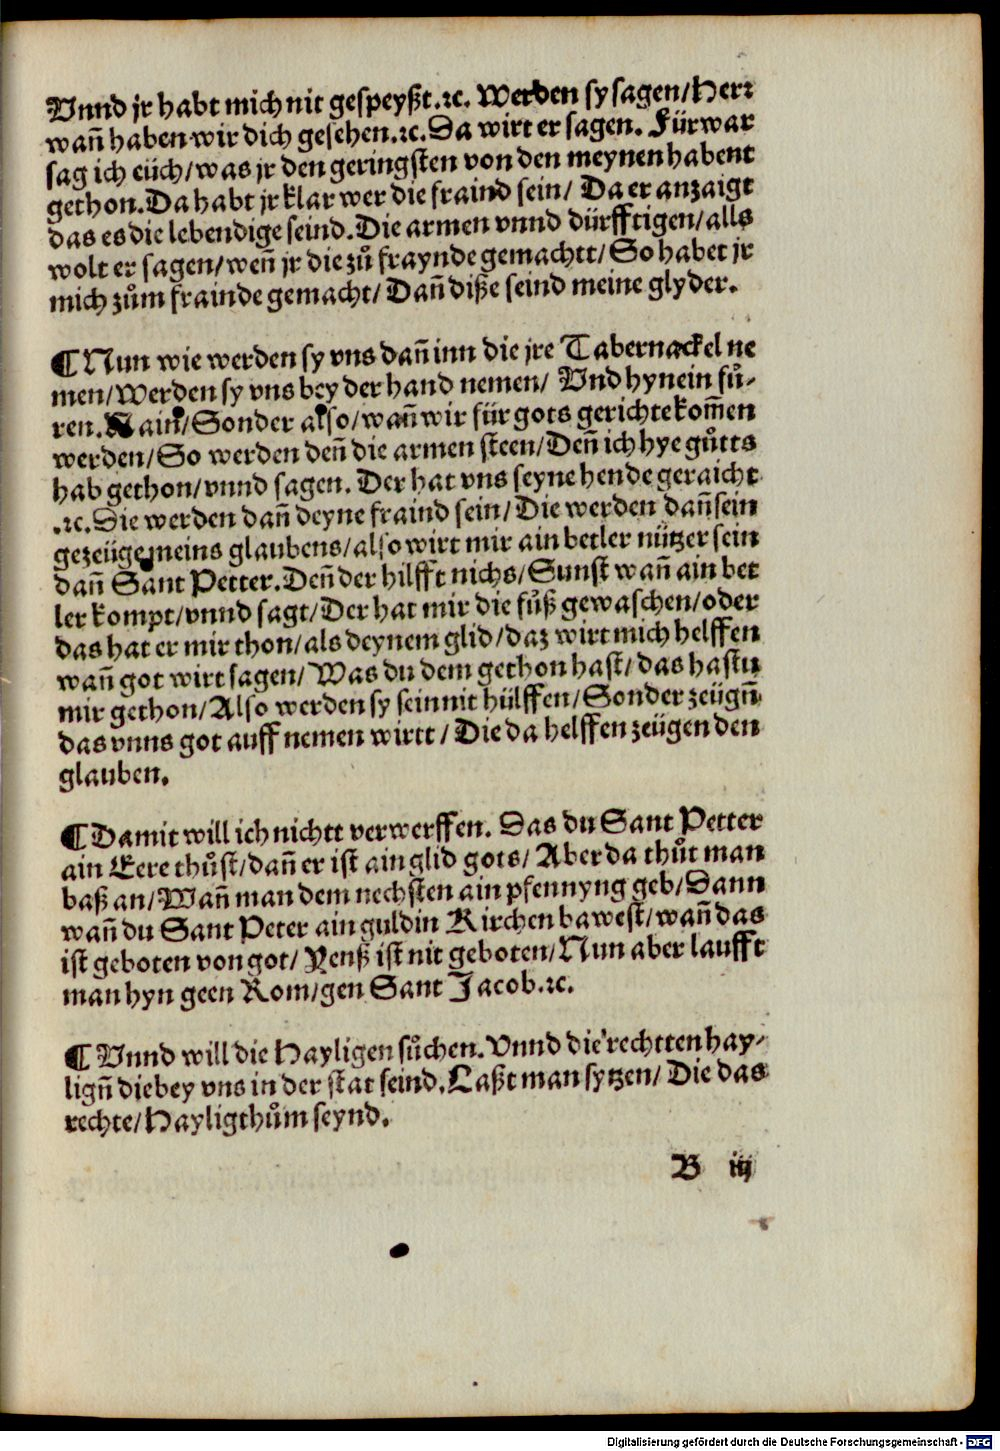 Vnnd jr habt mich nit gespeyßt.ꝛc. Werden sy sagen/Herꝛ
wañ haben wir dich gesehen.ꝛc. Da wirt er sagen. Fürwar
sag ich eüch/was jr den geringsten von den meynen habent
gethon. Da habt jr klar wer die fraind sein/ Da er anzaigt
das es die lebendige seind. Die armen vnnd dürfftigen/alls
wolt er sagen/weñ jr die zů fraynde gemachtt/ So habet jr
mich zům frainde gemacht/ Dañ diße seind meine glyder.
¶ Nun wie werden sy vns dañ inn die jre Tabernackel ne
men/Werden sy vns bey der hand nemen/ Vnd hynein fů-
ren. Nain/Sonder also/wañ wir für gots gerichte kom̃en
werden/So werden deñ die armen steen/Deñ ich hye gůtts
hab gethon/vnnd sagen. Der hat vns seyne hende geraicht
.ꝛc. Die werden dañ deyne fraind sein/Die werden dañ sein
gezeüge meins glaubens/also wirt mir ain betler nützer sein
dañ Sant Petter. Deñ der hilfft nichs/Sunst wañ ain bet
ler kompt/vnnd sagt/Der hat mir die fůß gewaschen/oder
das hat er mir thon/als deynem glid/daz wirt mich helffen
wañ got wirt sagen/Was du dem gethon hast/das hastu
mir gethon/Also werden sy sein nit hülffen/Sonder zeügñ
das vnns got auff nemen wirtt/Die da helffen zeügen den
glauben.
¶ Damit will ich nichtt verwerffen. Das du Sant Petter
ain Eere thůst/dañ er ist ain glid gots/ Aber da thůt man
baß an/Wañ man dem nechsten ain pfennyng geb/Dann
wañ du Sant Peter ain guldin Kirchen bawest/wañ das
ist geboten von got/ Yenß ist nit geboten/Nun aber laufft
man hyn geen Rom/gen Sant Jacob.ꝛc.
¶ Vnnd will die Hayligen sůchen. Vnnd die rechtten hay-
ligñ die bey vns in der stat seind. Laßt man sytzen/ Die das
rechte/Hayligthům seynd.
B iij
Digitalisierung gefördert durch die Deutsche Forschungsgemeinschaft - DFG